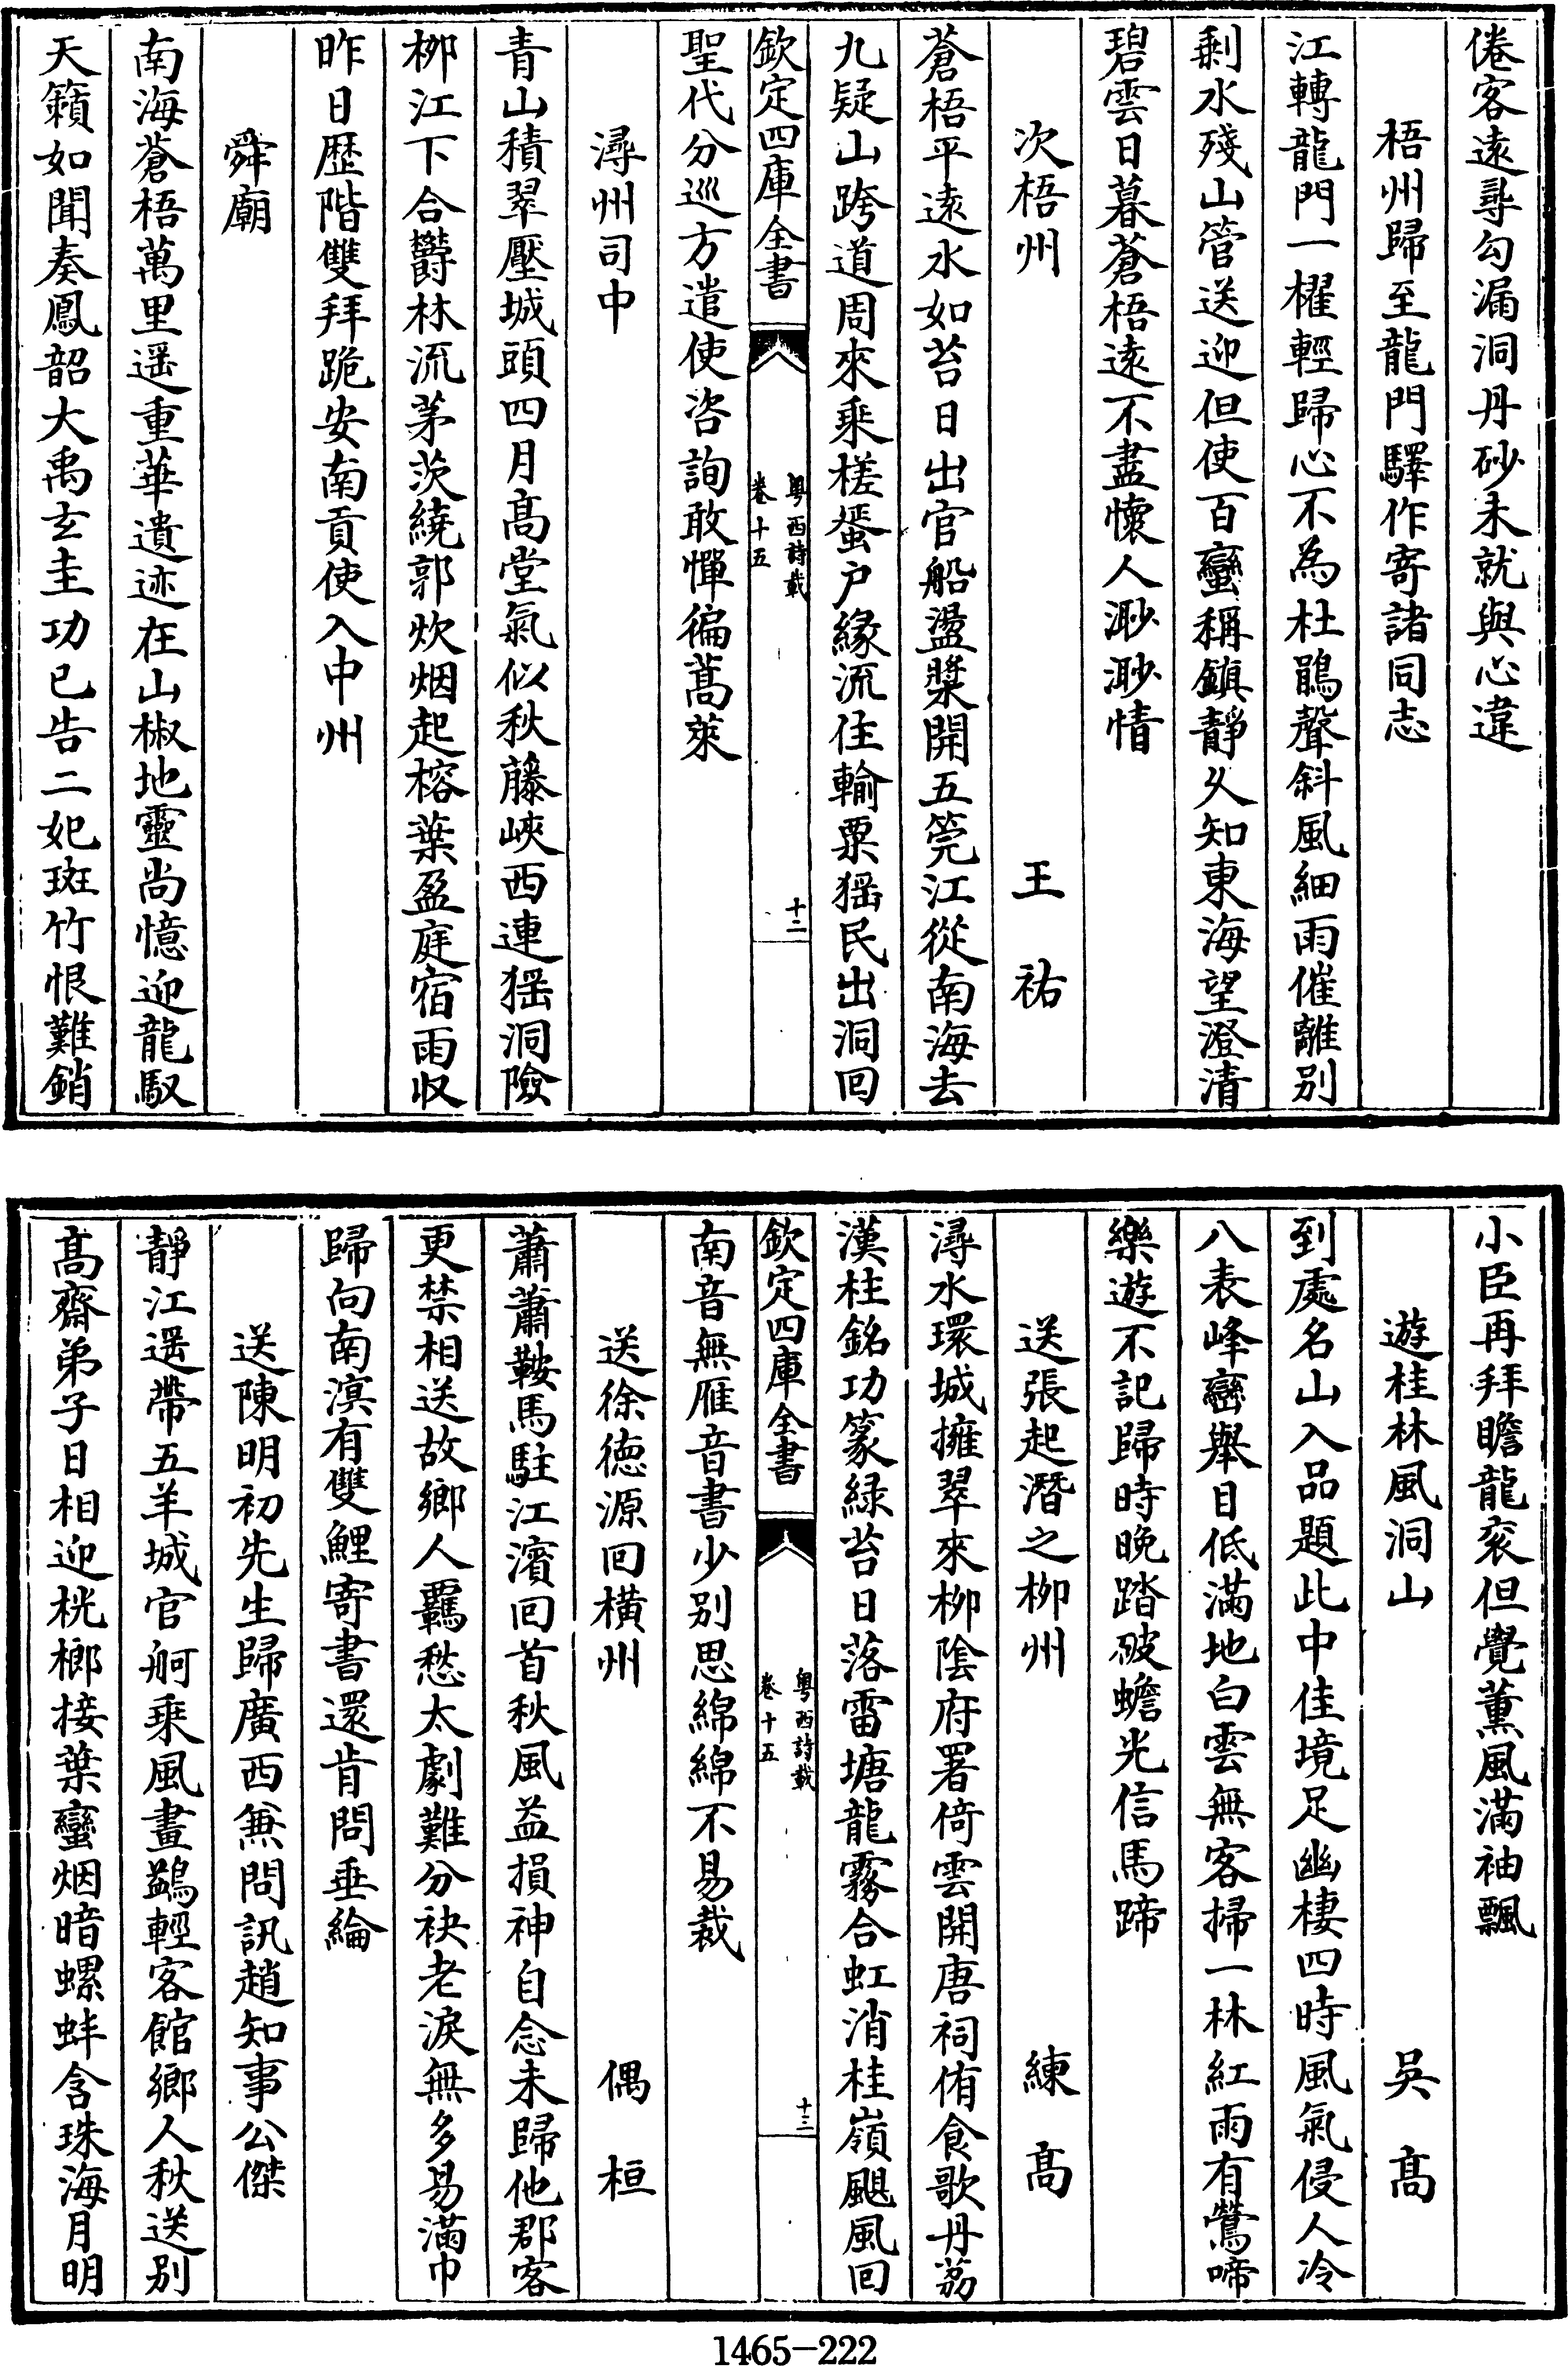 倦客遠尋勾漏洞丹砂未就與心違
梧州歸至龍門驛作寄諸同志
江轉龍門一櫂輕歸心不為杜鵑聲斜風細雨催離别
剩水殘山管送迎但使百蠻稱鎮靜乆知東海望澄清
碧雲日暮蒼梧遠不盡懷人渺渺情
次梧州　王祐
蒼梧平遠水如苔日出官船盪槳開五筦江從南海去
九疑山跨道周來乘槎蜑户緣流住輸粟猺民出洞回
欽定四庫全書　粤西詩載　卷十五　十二
聖代分巡方遣使咨詢敢憚徧蒿萊
潯州司中
青山積翠壓城頭四月髙堂氣似秋藤峽西連猺洞險
栁江下合鬱林流茅茨繞郭炊烟起榕葉盈庭宿雨収
昨日歴階雙拜跪安南貢使入中州
舜廟
南海蒼梧萬里遥重華遺迹在山椒地靈尚憶迎龍馭
天籟如聞奏鳳韶大禹玄圭功已告二妃斑竹恨難銷
小臣再拜瞻龍衮但覺薰風滿袖飄
遊桂林風洞山　吳髙
到處名山入品題此中佳境足幽棲四時風氣侵人冷
八表峰巒舉目低滿地白雲無客掃一林紅雨有鶯啼
樂遊不記歸時晚踏破蟾光信馬蹄
送張起潛之栁州　練髙
潯水環城擁翠來栁陰府署倚雲開唐祠侑食歌丹荔
漢柱銘功篆緑苔日落雷塘龍霧合虹消桂嶺颶風回
欽定四庫全書　粤西詩載　卷十五　十三
南音無雁音書少别思綿綿不易裁
送徐德源回横州　偶桓
蕭蕭鞍馬駐江濱回首秋風益損神自念未歸他郡客
更禁相送故鄉人羈愁太劇難分袂老淚無多易滿巾
歸向南溟有雙鯉寄書還肯問垂綸
送陳明初先生歸廣西兼問訊趙知事公傑
靜江遥帶五羊城官舸乘風畫鷁輕客館鄉人秋送别
髙齋弟子日相迎桄榔接葉蠻烟暗螺蚌含珠海月明
1465-222